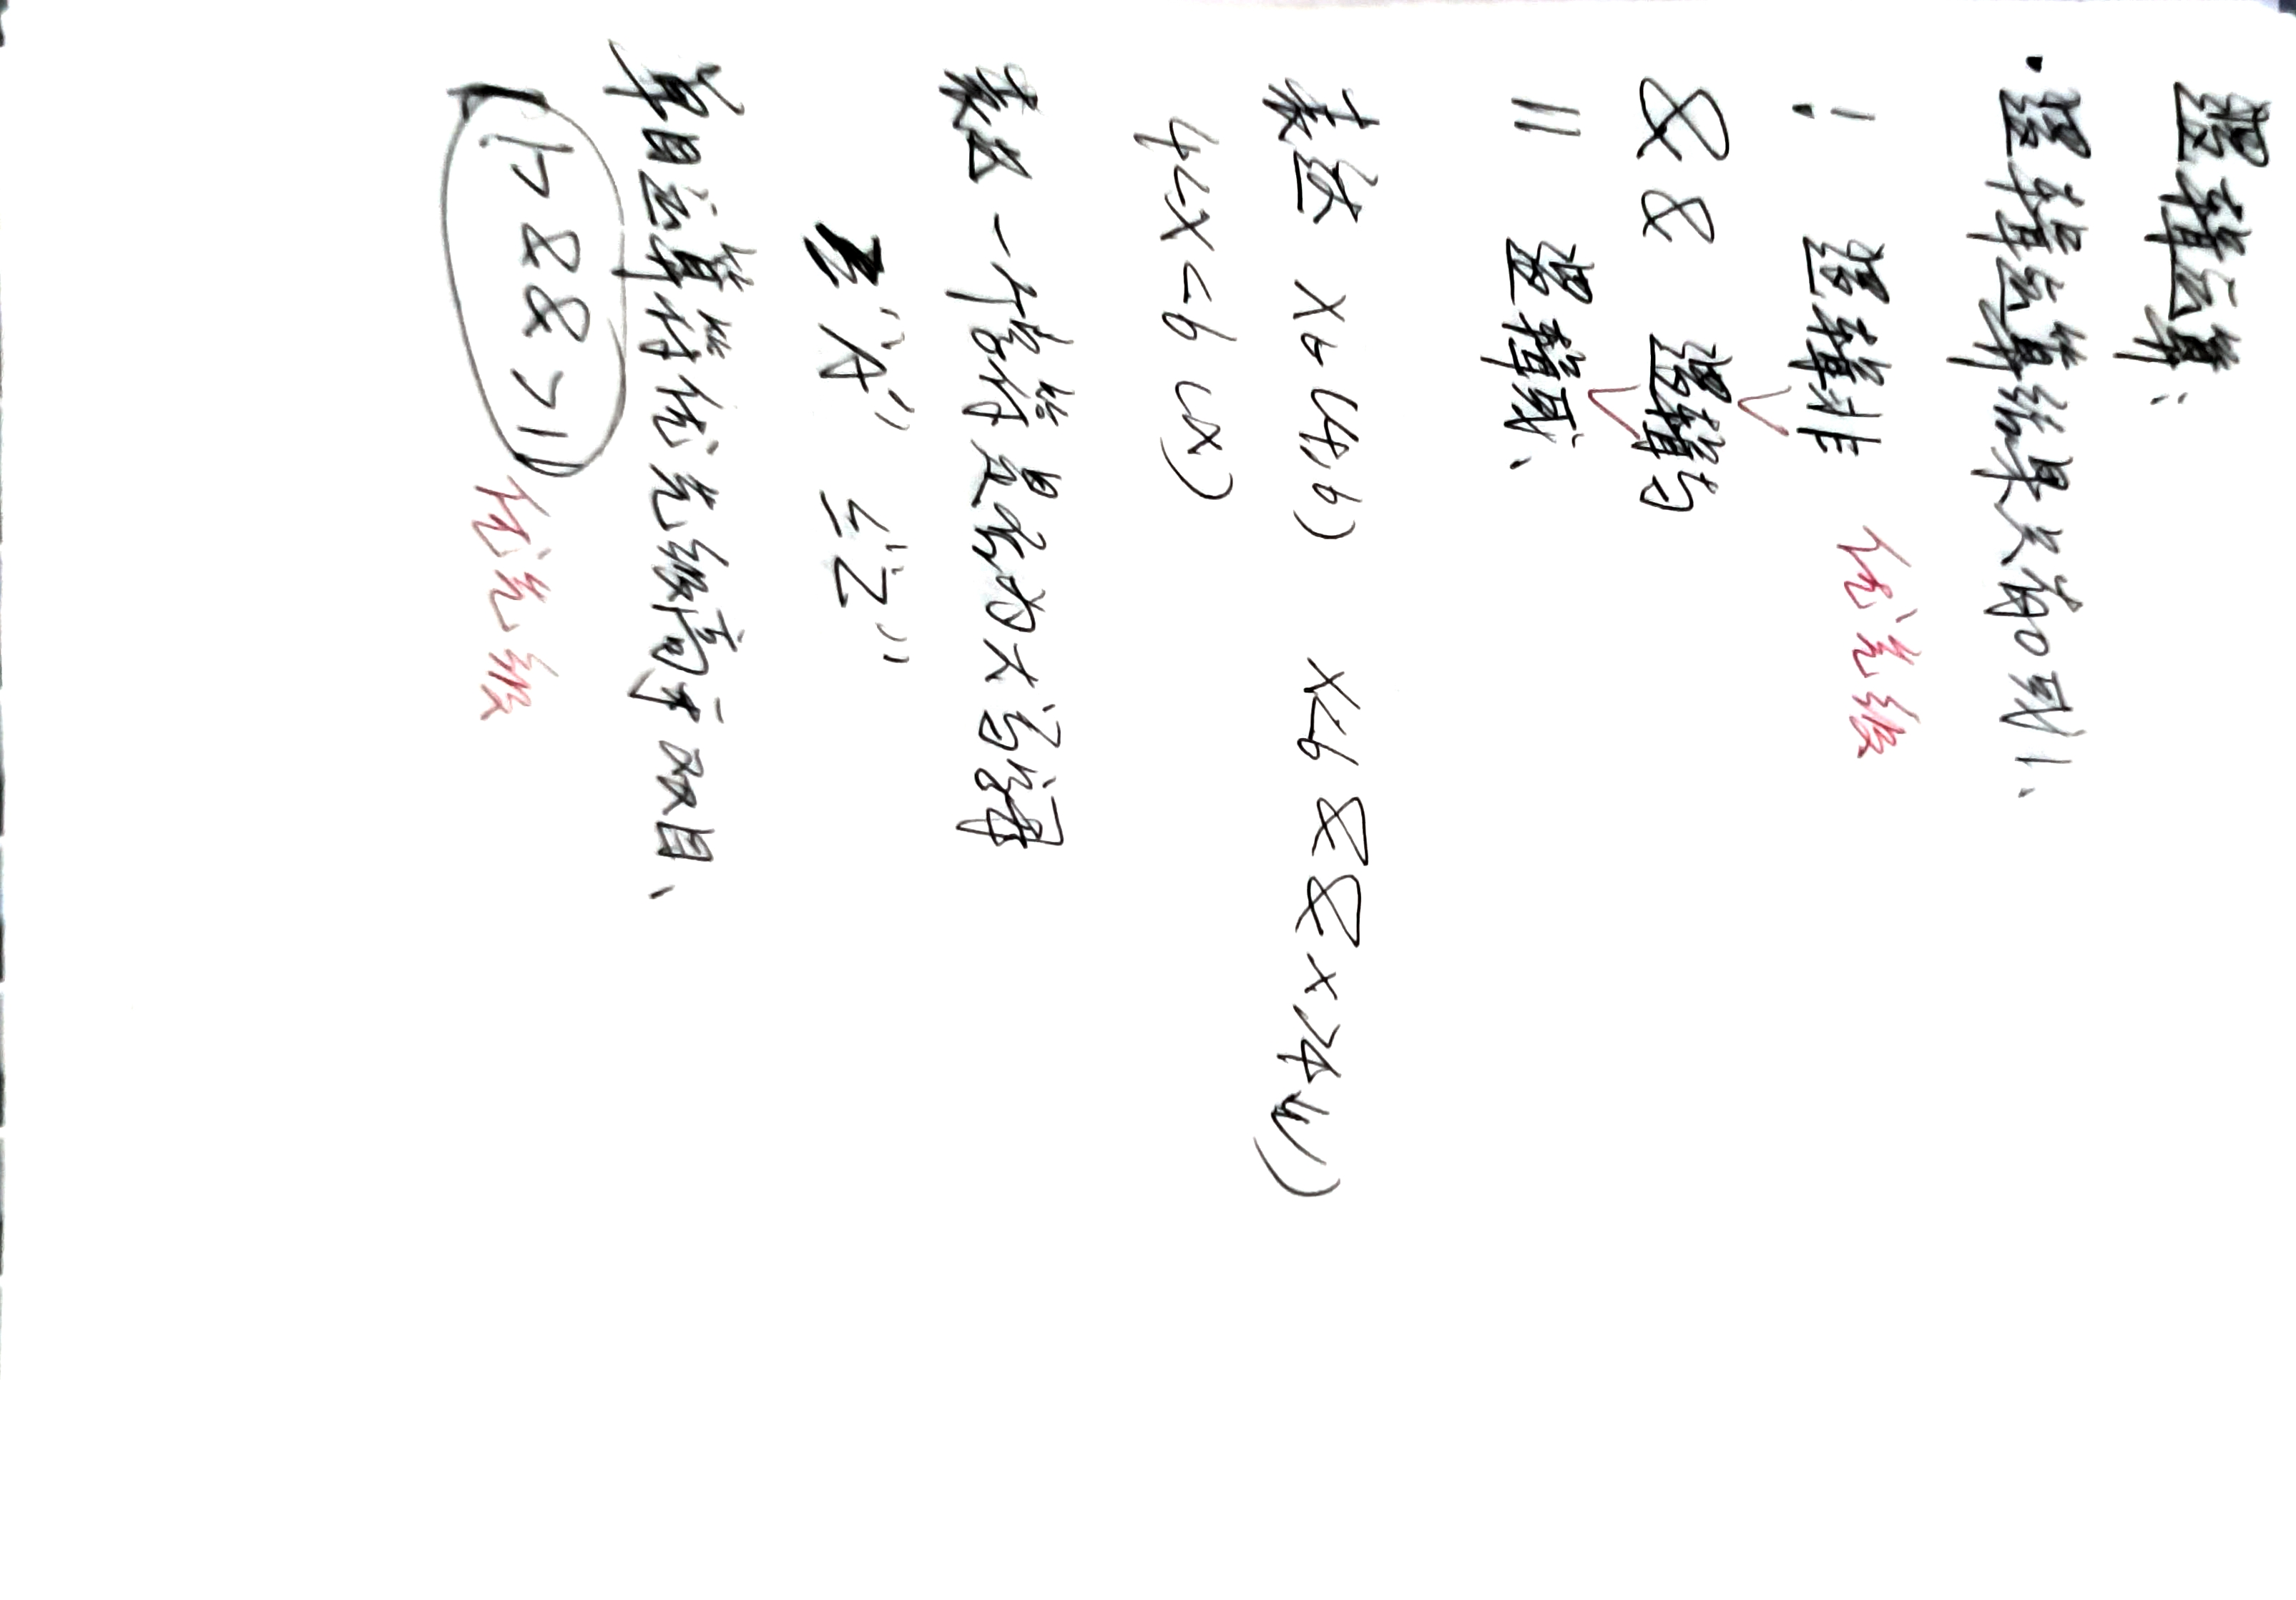 逻辑运算、
·逻辑运算结果只有0或1.
! 逻辑非 优先级
&& 逻辑与
|| 逻辑或、
表达 x∈(4,6) x<6 && x>4 (√)
4<x<6 (×)
表达一个字符是否为大写字母
"A" "Z"
单目运算符优先级高于双目、
! > && > || 优先级